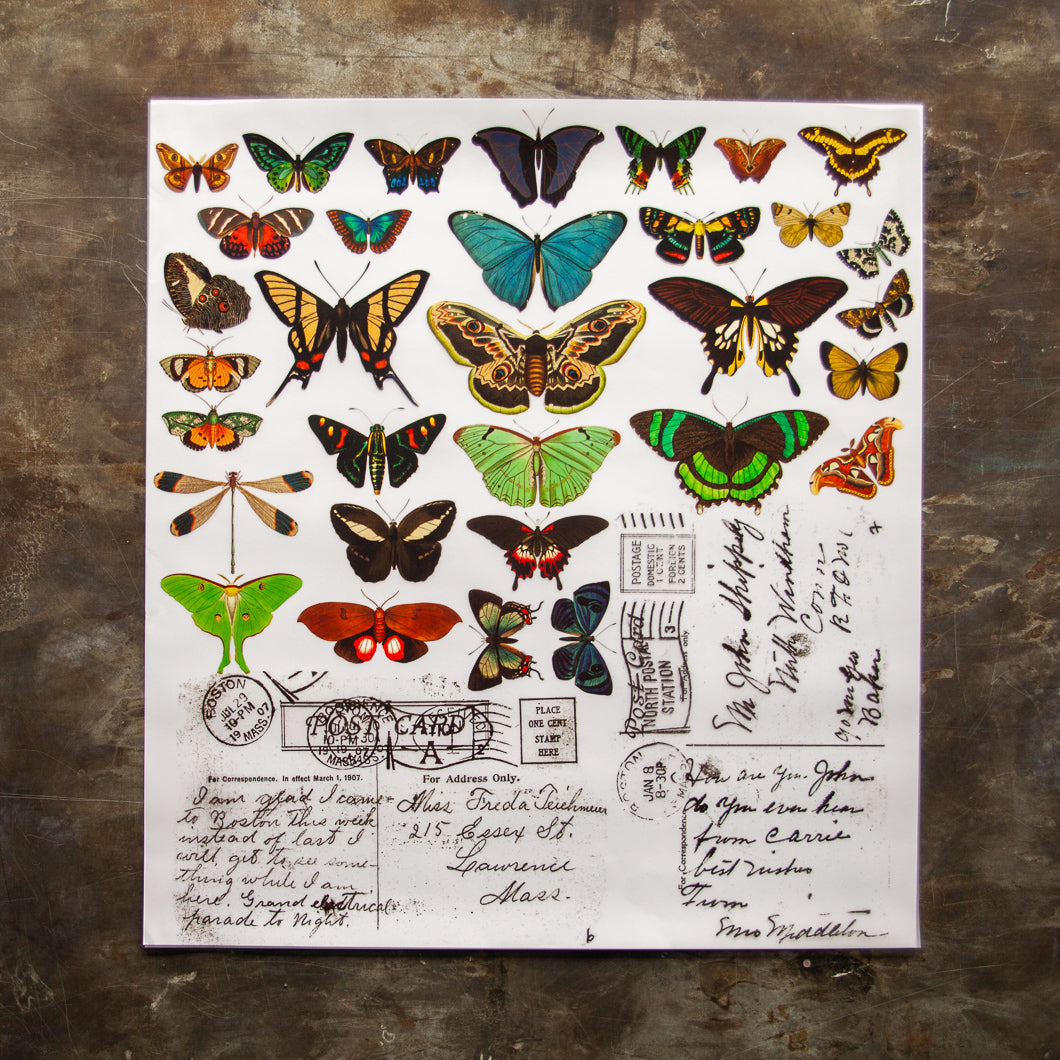 POSTAGE
DOMESTIC
1 CENT
FOREIGN
2 CENTS
Post Card
NORTH POSTAL
STATION
3
For Address only
Mr John Shippey
South Windham
Conn
BOSTON
JUL 29
10-PM
19 07
MASS.
POST CARD
A
2
PLACE
ONE CENT
STAMP
HERE
For Correspondence. In effect March 1, 1907.
I am glad I came
to Boston this week
instead of last I
will get to see some-
thing while I am
here. Grand electrical
parade to night.
For Address Only.
Miss Freda Teichmeier
215 Essex St.
Lawrence
Mass.
BOSTON
JAN 8
8-30P
For Correspondence
How are you John
do you ever hear
from Carrie
best wishes
From
Mrs Middleton
b